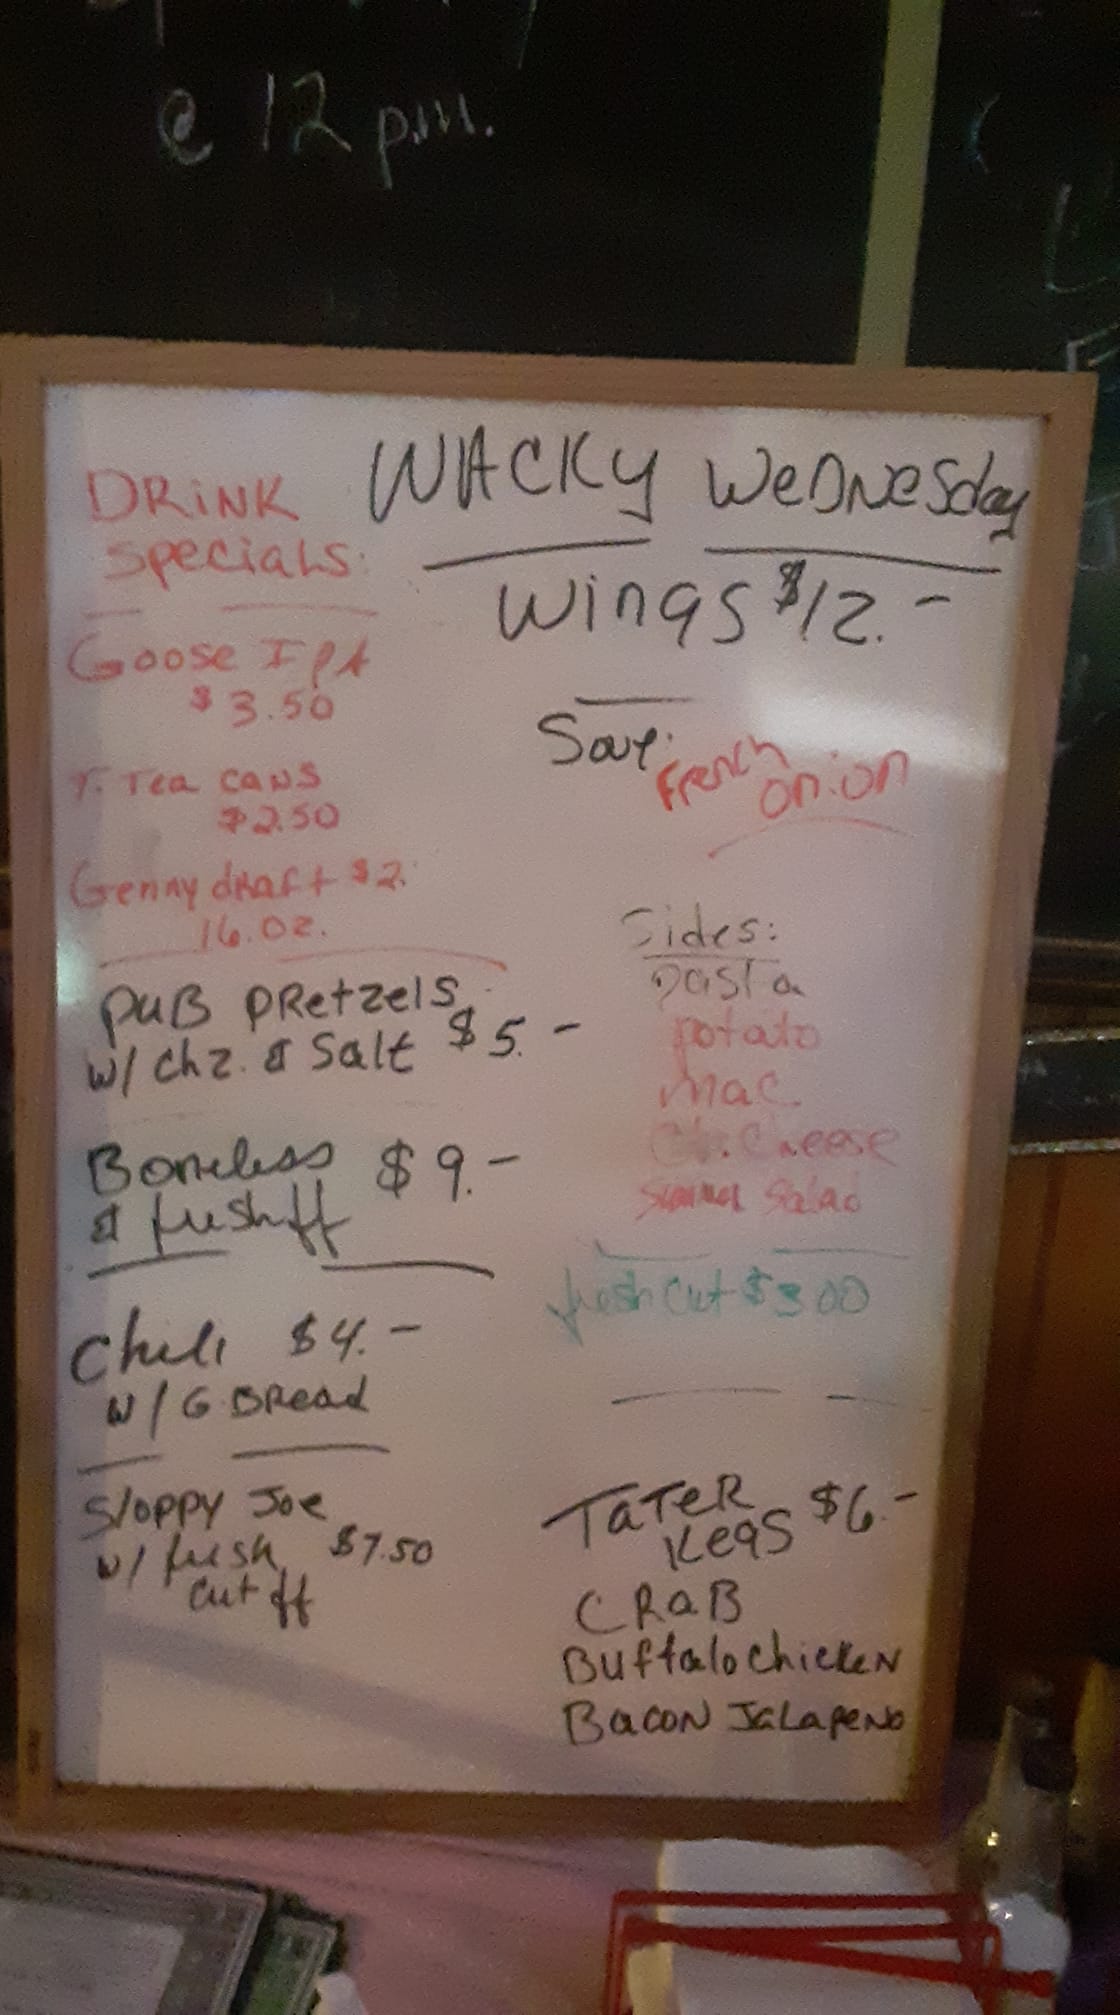 @ 12 p.m.
WACKY WEDNESday
Wings $12.-
DRINK
SpeciaLS:
Goose IPA
$3.50
T. Tea cans
$2.50
Genny draft $2.
16.oz.
PUB PRetzels
w/ chz. & Salt $5.-
Boneless $9.-
& fresh ff
Chili $4.-
w/ G. BRead
Sloppy Joe
w/ fresh $7.50
cut ff
Soup:
French
onion
Sides:
pasta
potato
mac
Ch. Cheese
Salad
fresh cut $3.00
TaTeR $6.-
Kegs
CRaB
Buffalo chicken
Bacon JaLapeno